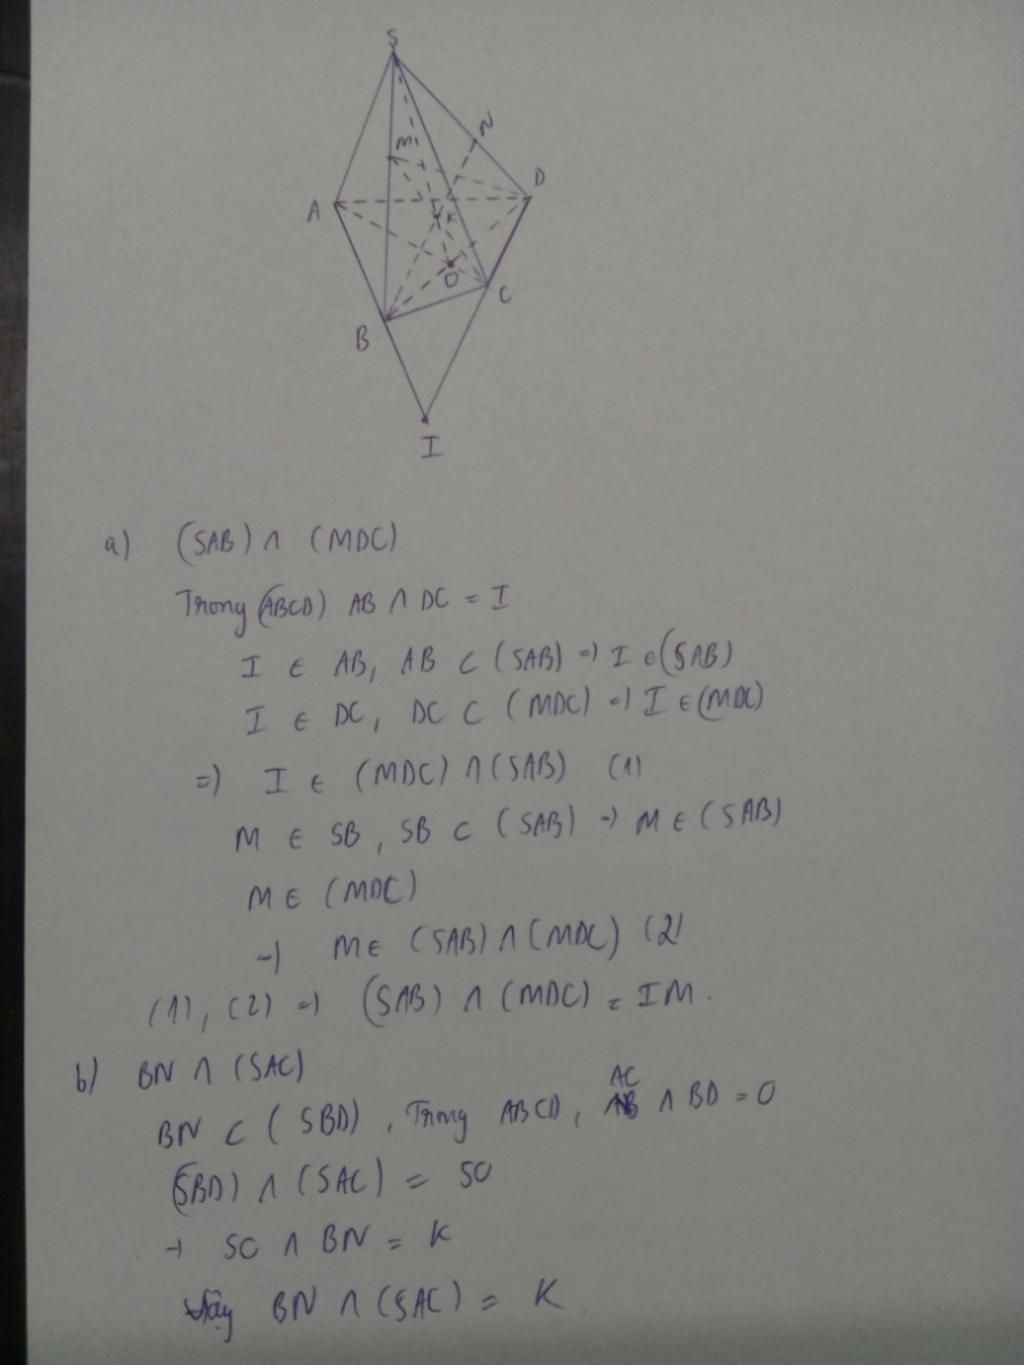 S
N
M
D
A
K
O
C
B
I
a) (SAB) ∩ (MDC)
Trong (ABCD) AB ∩ DC = I
I ∈ AB, AB ⊂ (SAB) => I ∈ (SAB)
I ∈ DC, DC ⊂ (MDC) => I ∈ (MDC)
=> I ∈ (MDC) ∩ (SAB) (1)
M ∈ SB, SB ⊂ (SAB) -> M ∈ (SAB)
M ∈ (MDC)
-> M ∈ (SAB) ∩ (MDC) (2)
(1), (2) => (SAB) ∩ (MDC) = IM.
b) BN ∩ (SAC)
BN ⊂ (SBD), Trong ABCD, AC ∩ BD = O
(SBD) ∩ (SAC) = SO
-> SO ∩ BN = K
Vậy BN ∩ (SAC) = K.